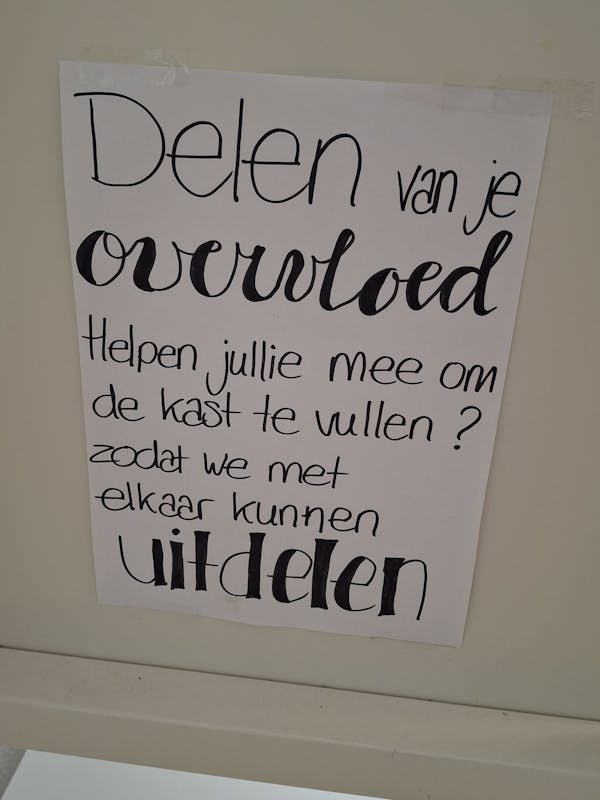 Delen van je
overvloed
Helpen jullie mee om
de kast te vullen ?
zodat we met
elkaar kunnen
uitdelen